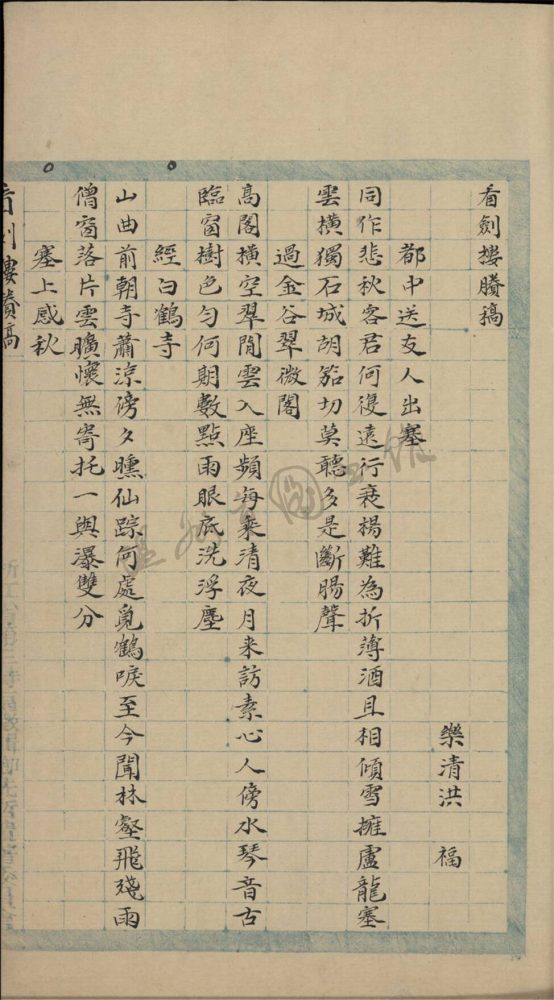 看劍樓賸稿
樂清洪　福
都中送友人出塞
同作悲秋客君何復遠行衰楊難為折薄酒且相傾雪擁盧龍塞
雲橫獨石城胡笳切莫聽多是斷腸聲
過金谷翠微閣
高閣橫空翠閒雲入座頻每乘清夜月来訪素心人傍水琴音古
臨窗樹色勻何期數點雨眼底洗浮塵
經白鶴寺
山曲前朝寺蕭涼傍夕曛仙踪何處覓鶴唳至今聞林壑飛殘雨
僧窗落片雲曠懷無寄托一與瀑雙分
塞上感秋
看劍樓賸稿